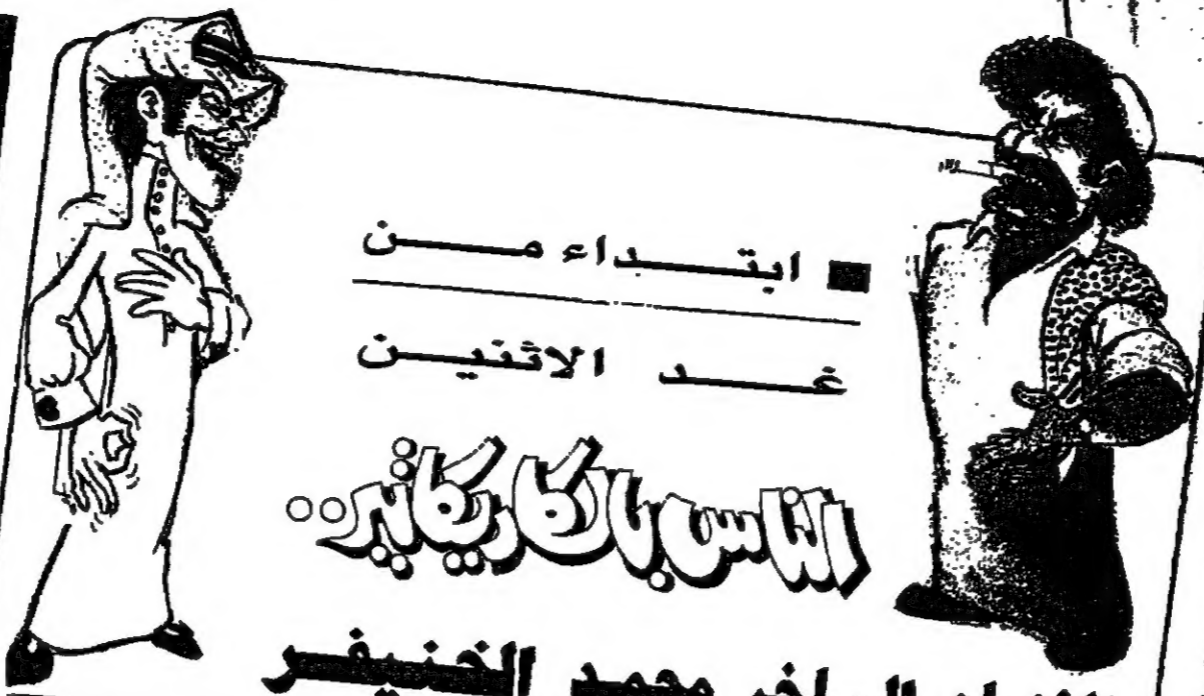 ■ ابتداء من
غد الاثنين
الناس بالكاريكاتير..
محمد الخنيفر